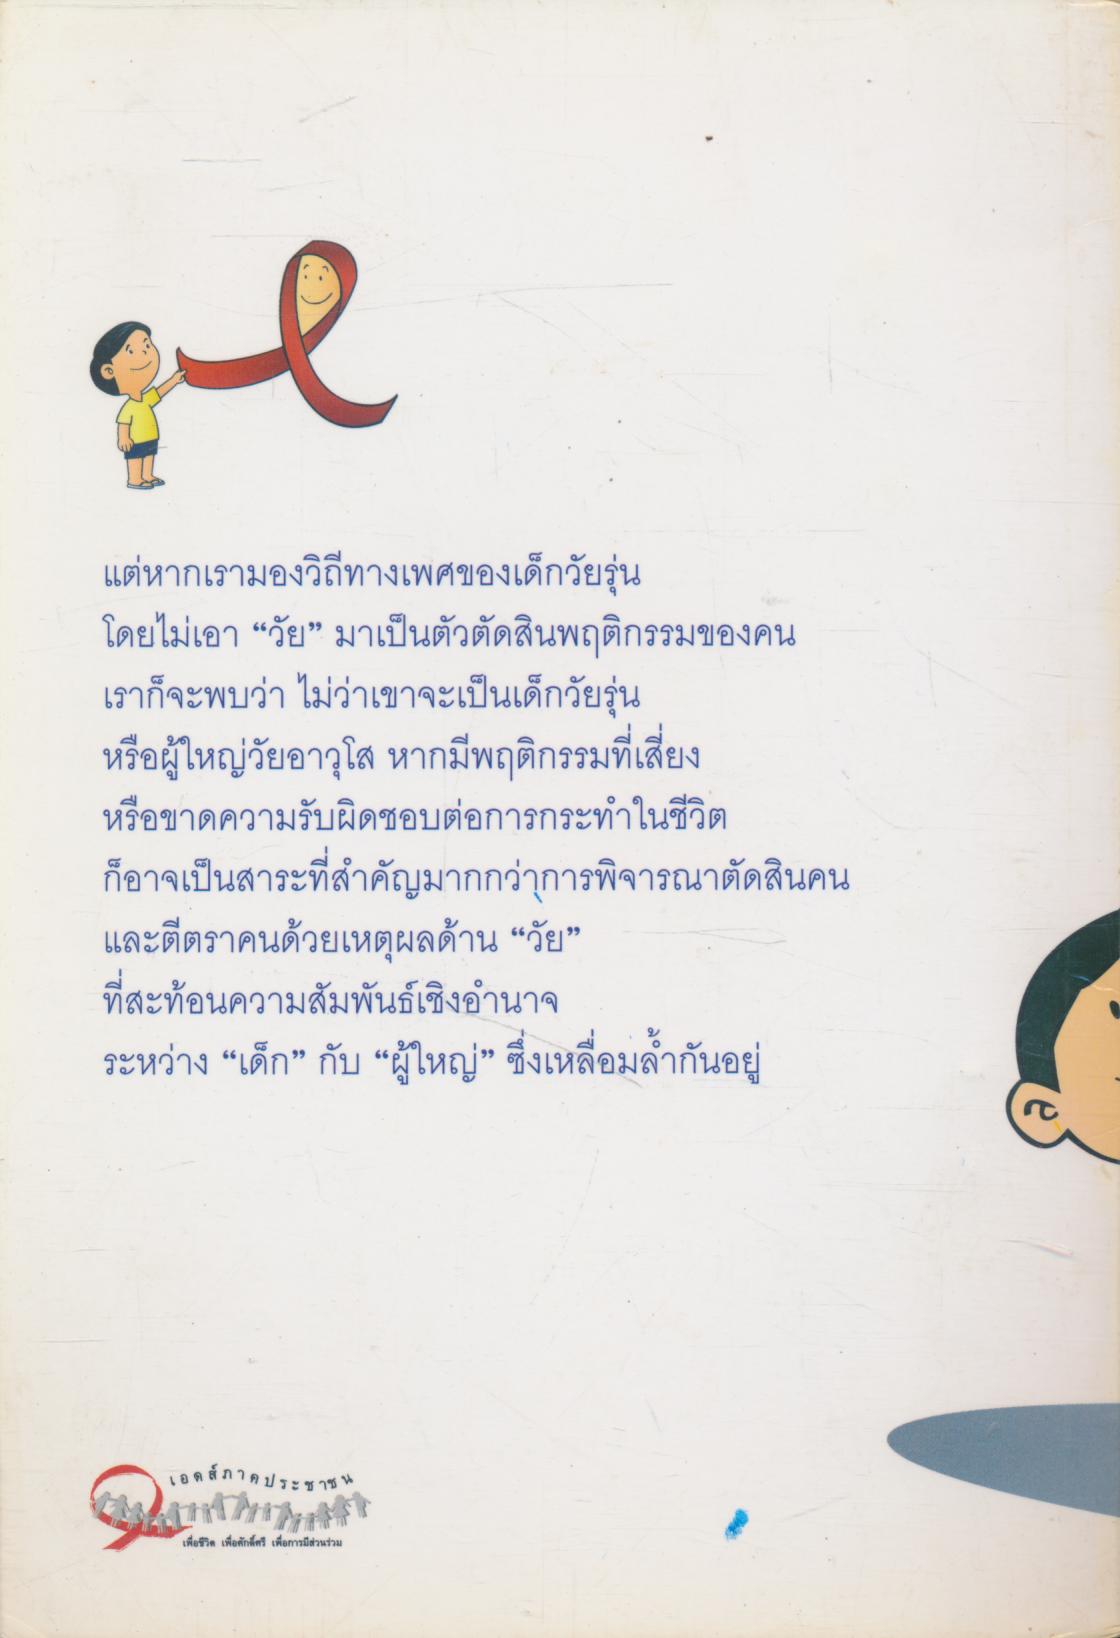 แต่หากเรามองวิถีทางเพศของเด็กวัยรุ่น
โดยไม่เอา “วัย” มาเป็นตัวตัดสินพฤติกรรมของคน
เราก็จะพบว่า ไม่ว่าเขาจะเป็นเด็กวัยรุ่น
หรือผู้ใหญ่วัยอาวุโส หากมีพฤติกรรมที่เสี่ยง
หรือขาดความรับผิดชอบต่อการกระทำในชีวิต
ก็อาจเป็นสาระที่สำคัญมากกว่าการพิจารณาตัดสินคน
และตีตราคนด้วยเหตุผลด้าน “วัย”
ที่สะท้อนความสัมพันธ์เชิงอำนาจ
ระหว่าง “เด็ก” กับ “ผู้ใหญ่” ซึ่งเหลื่อมล้ำกันอยู่
เอดส์ภาคประชาชน
เพื่อชีวิต เพื่อศักดิ์ศรี เพื่อการมีส่วนร่วม